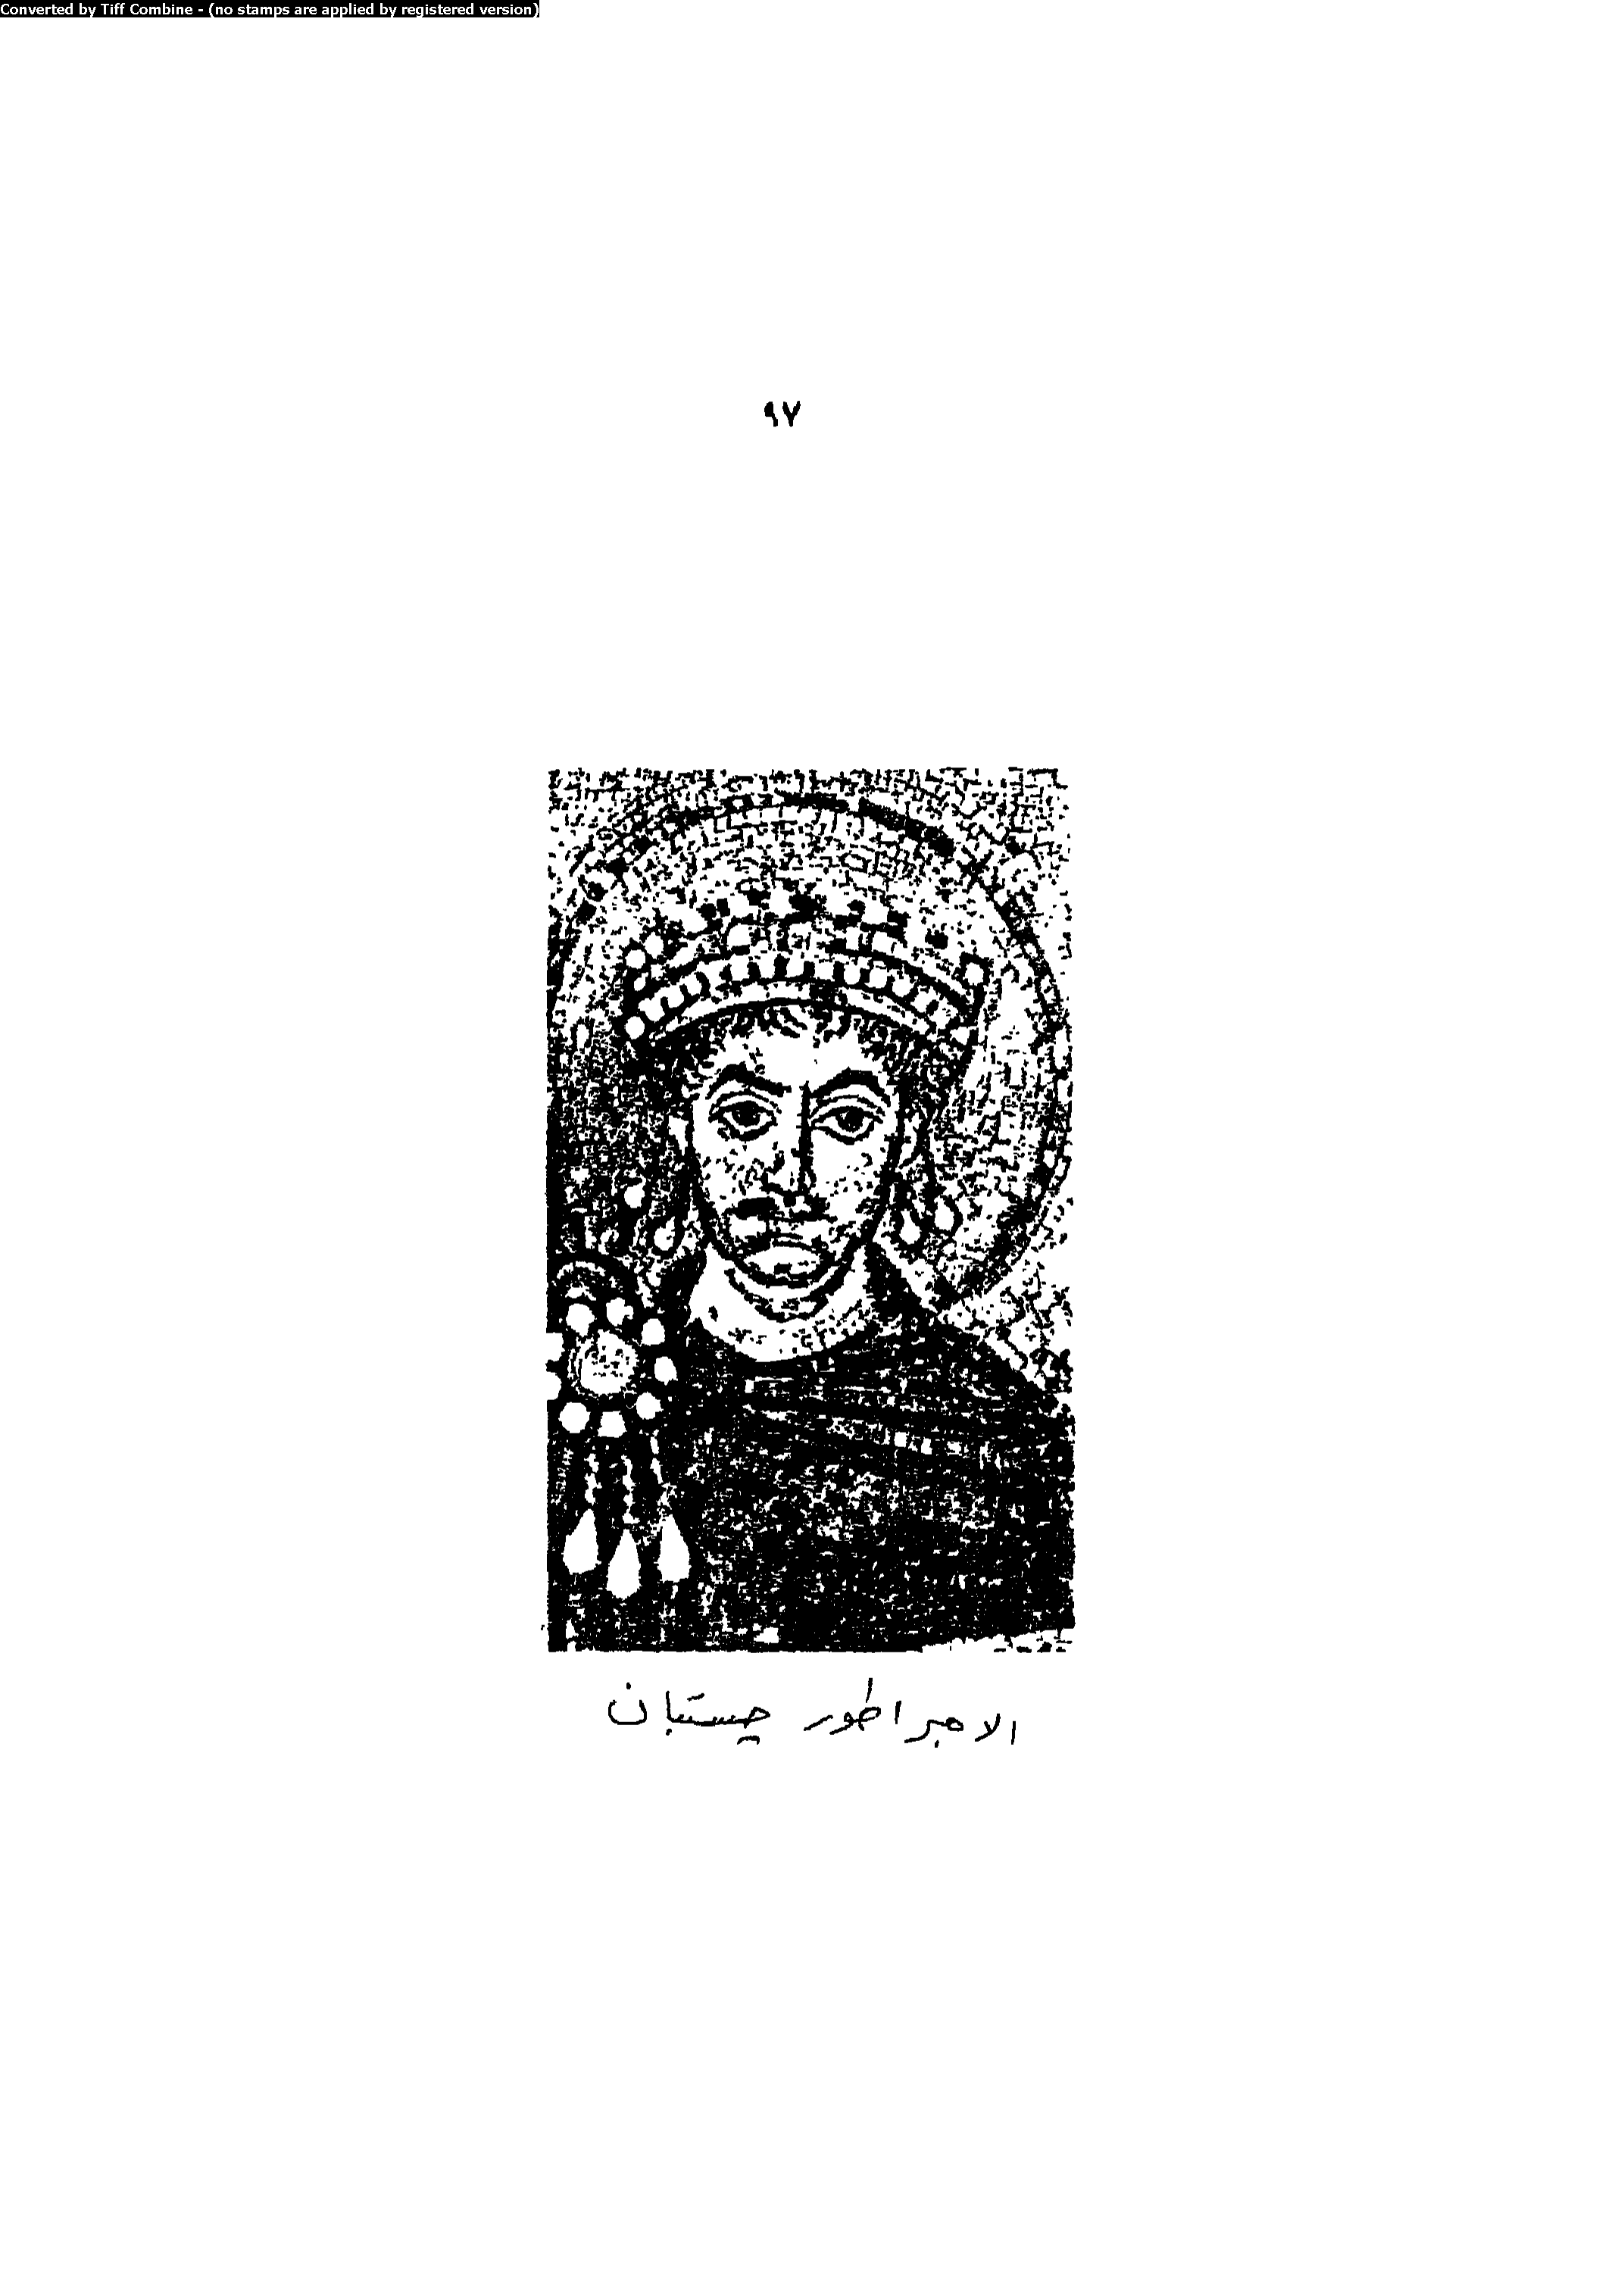 Converted by Tiff Combine - (no stamps are applied by registered version)
٩٧
الامبراطور جستيان